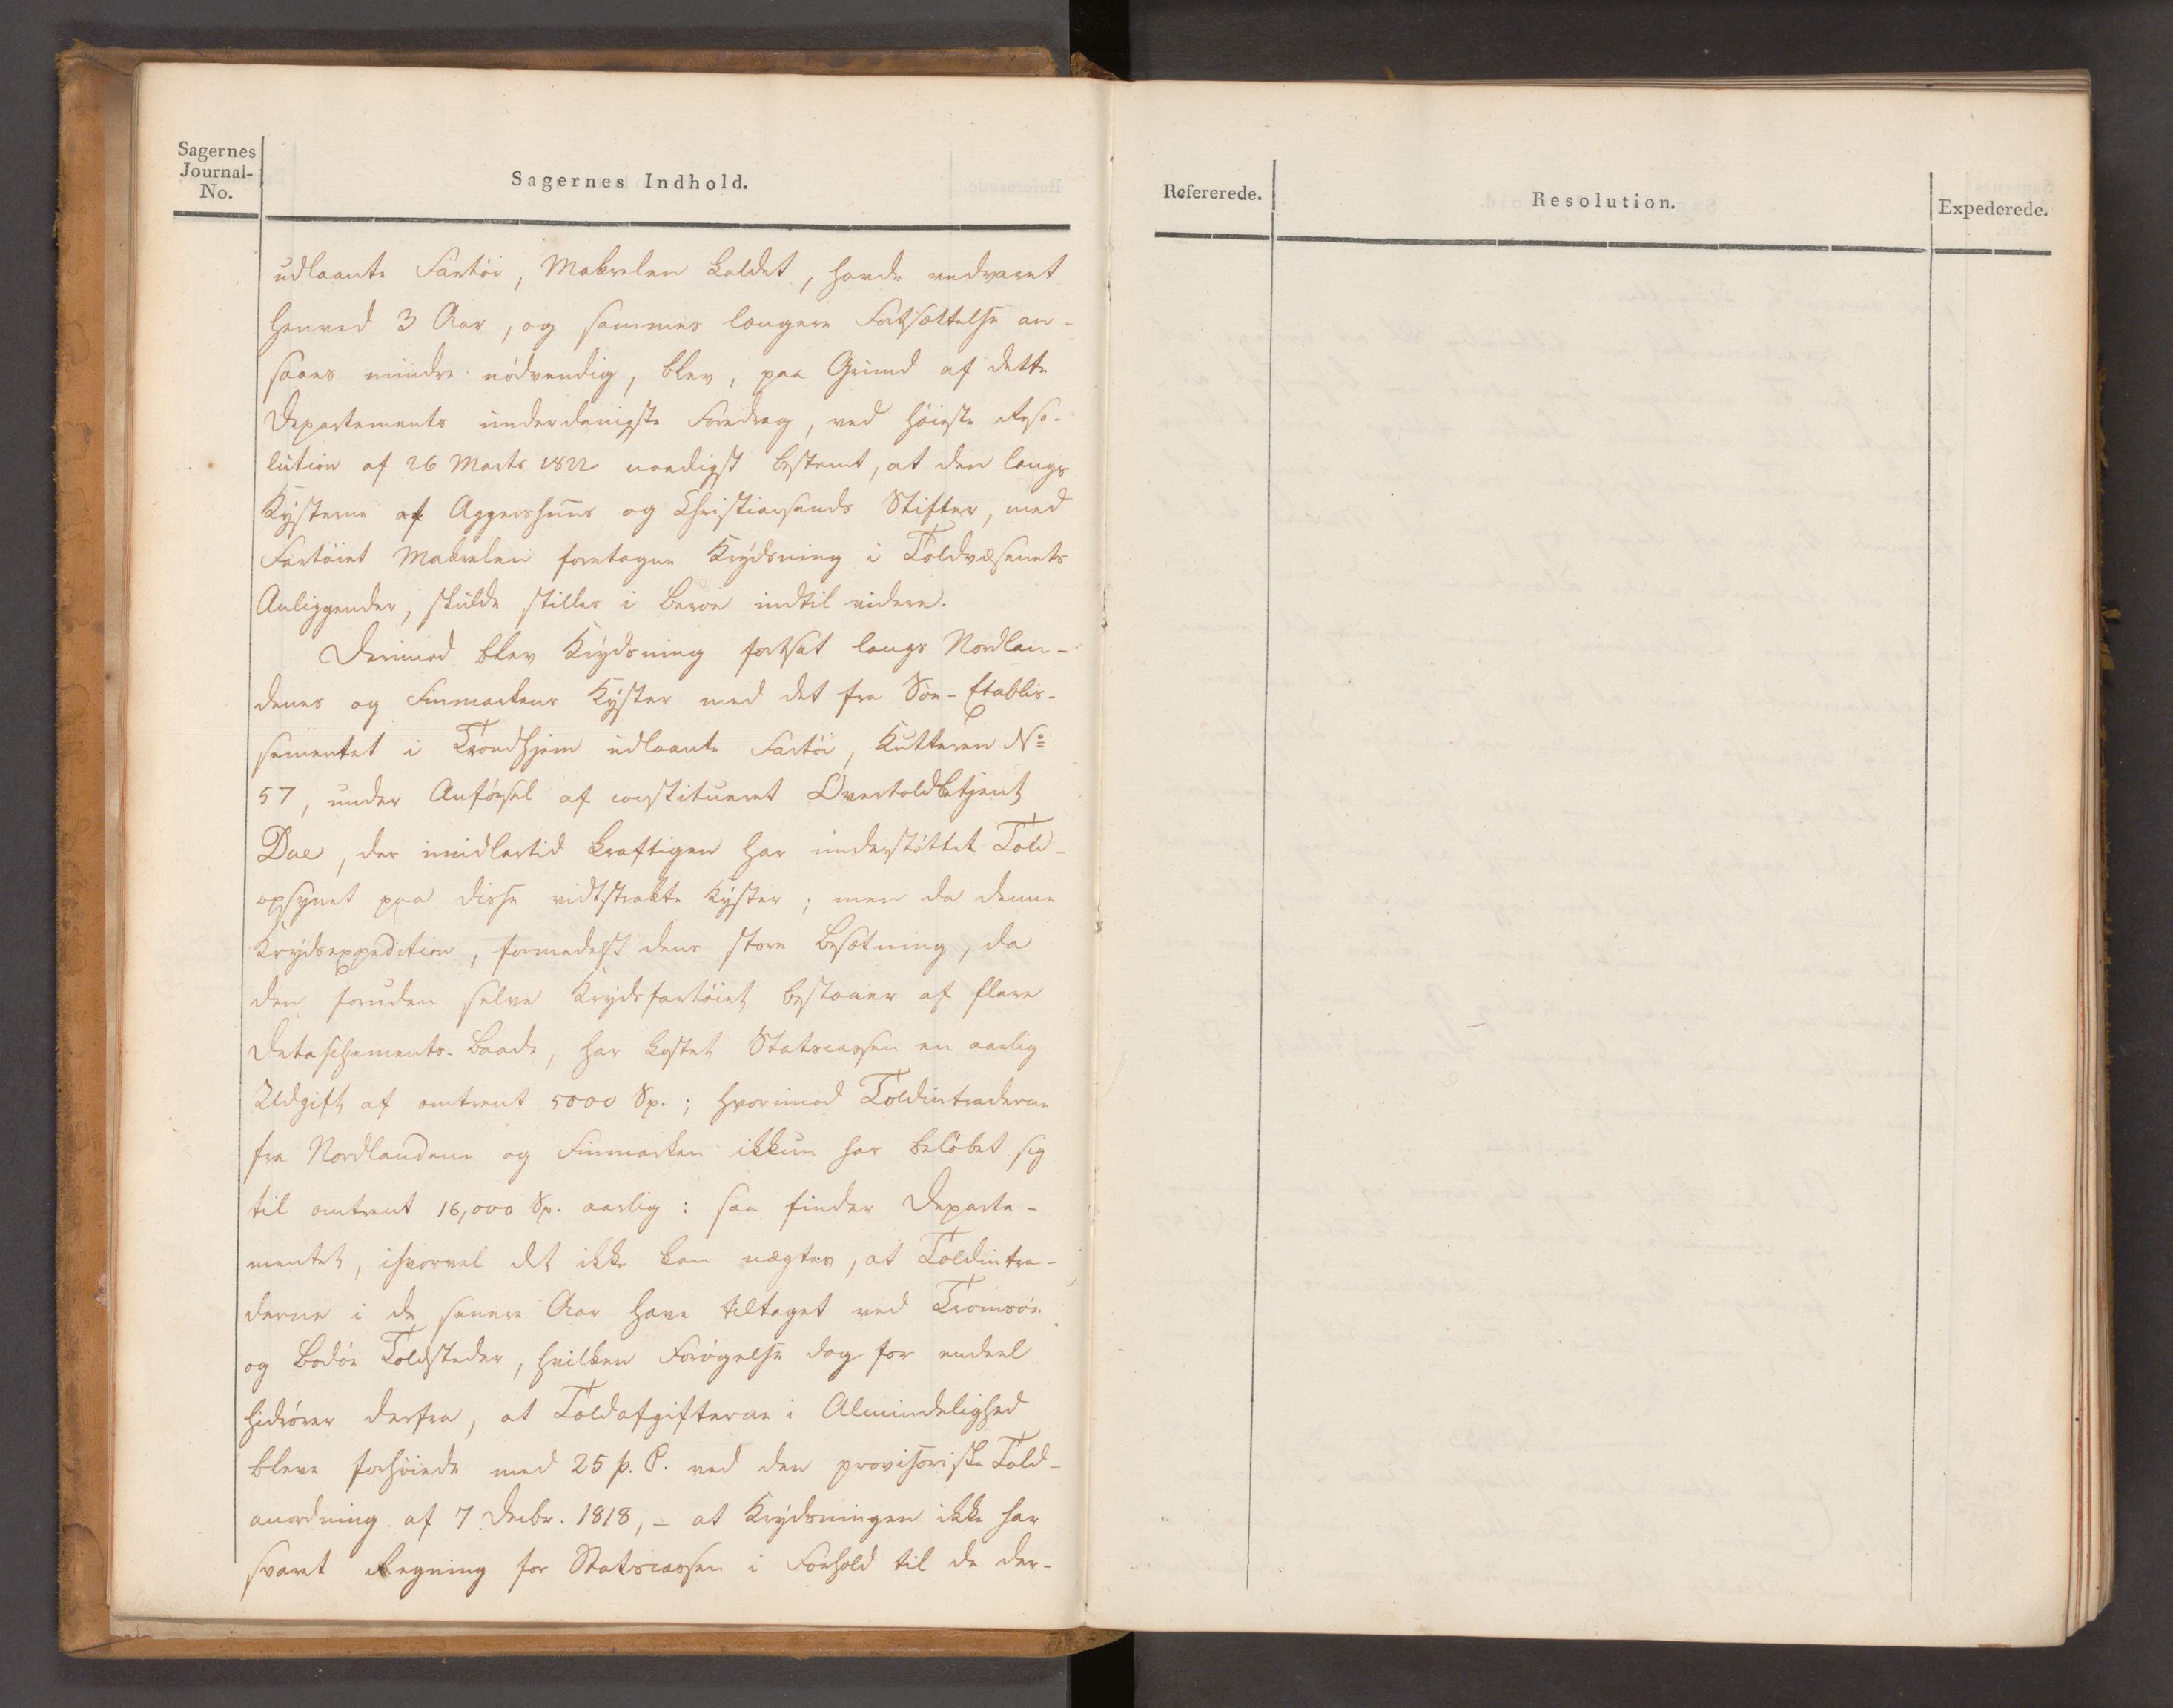 Sagernes
Journal-
No.
Sagernes Indhold.
udlaante Fartöi, Makrelen kaldet, havde vedvaret
henved 3 Aar, og sammes længere Fortsættelse an-
saaes mindre nödvendig, blev, paa Grund af dette
Departements underdanigste Foredrag, ved höieste Reso-
lution af 26 Marts 1822 naadigst bestemt, at den langs
Kysterne af Aggershuus og Christiansands Stifter, med
Fartöiet Makrelen foretagne Krydsning i Toldvæsenets
Anliggender, skulde stilles i Beroe indtil videre.
Derimod blev Krydsning fortsat langs Nordlan-
denes og Finmarkens Kyster med det fra Söe-Etablis-
sementet i Trondhjem udlaante Fartöi, Kutteren No
57, under Anförsel af constitueret Overtoldbetjent
Due, der imidlertid kraftigen har understöttet Told-
opsynet paa disse vidtstrakte Kyster; men da denne
Krydsexpedition, formedelst dens store Besætning, da
den foruden selve Krydsfartöiet bestaaer af flere
Detaschements-Baade, har kostet Statscassen en aarlig
Udgift af omtrent 5000 Sp.; hvorimod Toldintraderne
fra Nordlandene og Finmarken ikkun har belöbet sig
til omtrent 16,000 Sp. aarlig: saa finder Departe-
mentet, ihvorvel det ikke kan nægtes, at Toldintra-
derne i de senere Aar have tiltaget ved Tromsöe
og Bodöe Toldsteder, hvilken Forögelse dog for endeel
hidrörer derfra, at Toldafgifterne i Almindelighed
bleve forhöiede med 25 p. C. ved den provisoriske Told-
anordning af 7 Decbr. 1818, - at Krydsningen ikke har
svaret Regning for Statscassen i Forhold til de der-
Refererede.
Resolution.
Expederede.